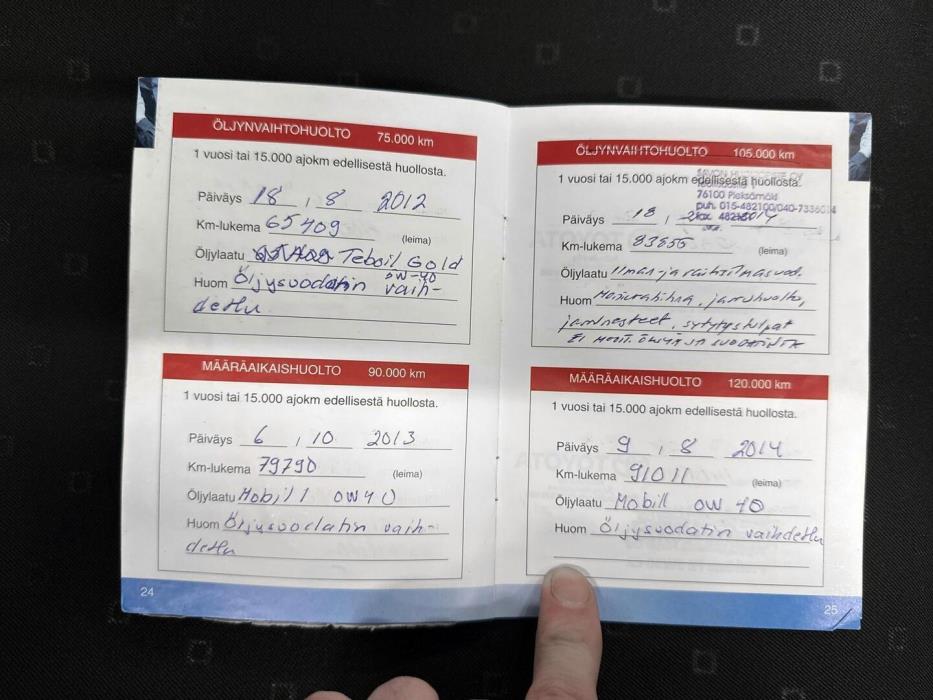 ÖLJYNVAIHTOHUOLTO 75.000 km
1 vuosi tai 15.000 ajokm edellisestä huollosta.
Päiväys 18 , 8 2012
Km-lukema 65409
(leima)
Öljylaatu Teboil Gold
0W-40
Huom Öljysuodatin vaih-
dettu
MÄÄRÄAIKAISHUOLTO 90.000 km
1 vuosi tai 15.000 ajokm edellisestä huollosta.
Päiväys 6 , 10 2013
Km-lukema 79790
(leima)
Öljylaatu Mobil 1 0W40
Huom Öljysuodatin vaih-
dettu
24
ÖLJYNVAIHTOHUOLTO 105.000 km
1 vuosi tai 15.000 ajokm edellisestä huollosta.
76100 Pieksämäki
puh. 015-482100/040-
Päiväys 18 ,
Km-lukema
(leima)
Öljylaatu Ilman-ja
Huom jarruhuolto,
jarrunesteet, sytytystulpat
MÄÄRÄAIKAISHUOLTO 120.000 km
1 vuosi tai 15.000 ajokm edellisestä huollosta.
Päiväys 9 , 8 2014
Km-lukema 91011
(leima)
Öljylaatu Mobil 0W 40
Huom Öljysuodatin vaihdettu
25